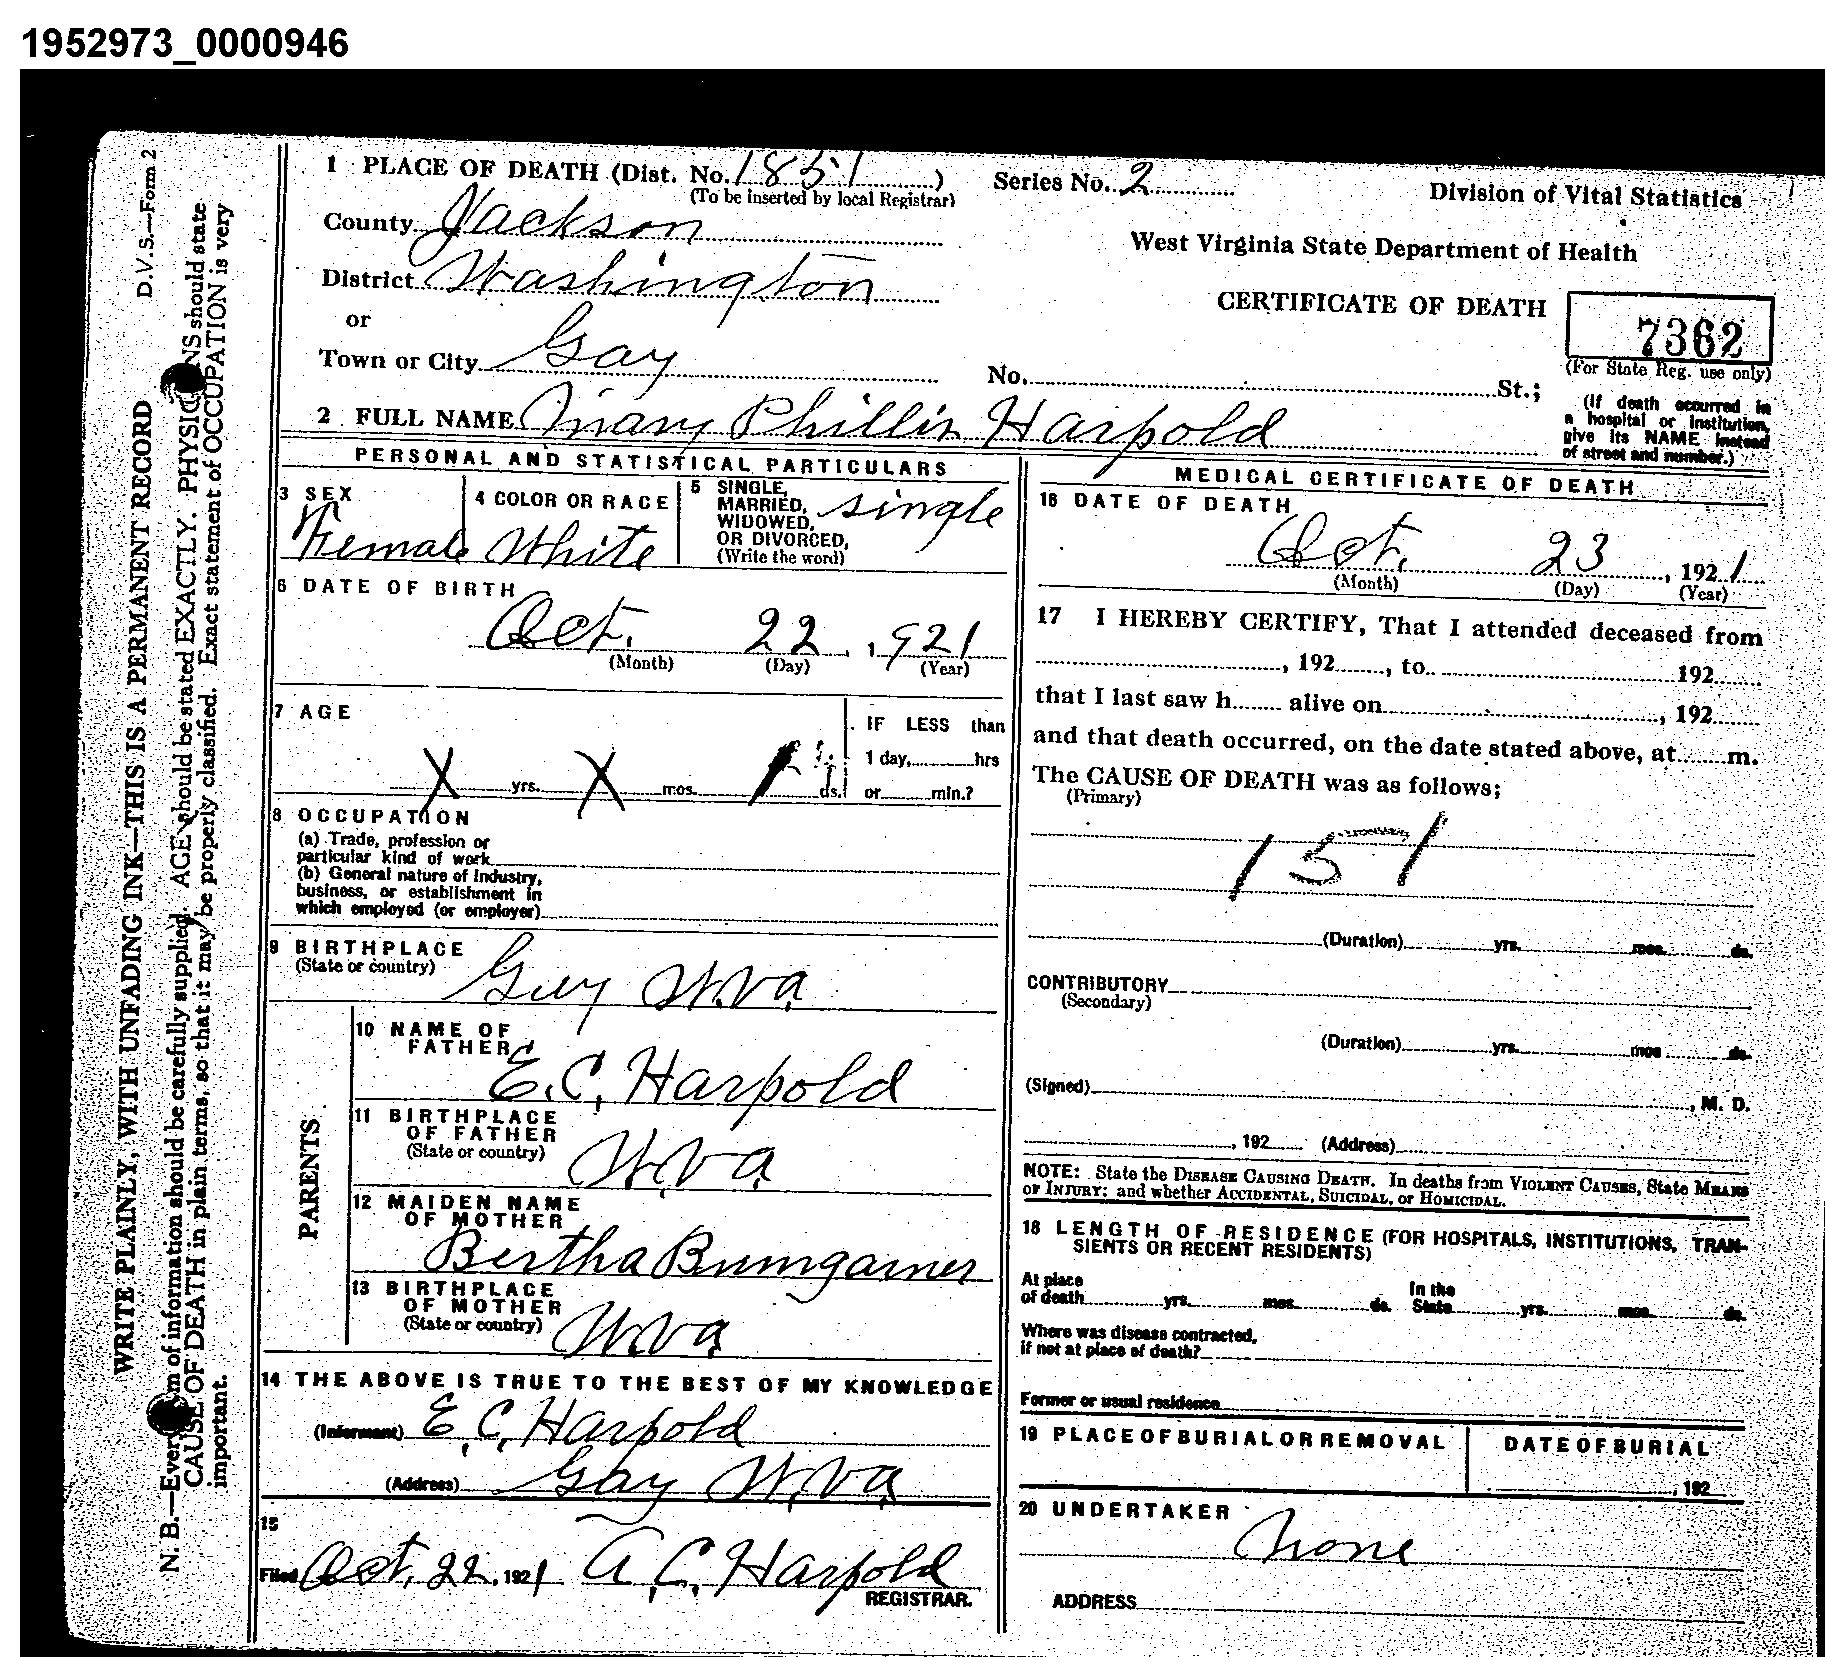 1952973_0000946
D.V.S.—Form 2
WRITE PLAINLY, WITH UNFADING INK—THIS IS A PERMANENT RECORD
N. B.—Every item of information should be carefully supplied. AGE should be stated EXACTLY. PHYSICIANS should state
CAUSE OF DEATH in plain terms, so that it may be properly classified. Exact statement of OCCUPATION is very
important.
1 PLACE OF DEATH (Dist. No. 1851)
(To be inserted by local Registrar)
Series No. 2
Division of Vital Statistics
County Jackson
West Virginia State Department of Health
District Washington
CERTIFICATE OF DEATH
7362
(For State Reg. use only)
or
Town or City Gay
No. St.;
(If death occurred in
a hospital or institution,
give its NAME instead
of street and number.)
2 FULL NAME Mary Phillis Harpold
PERSONAL AND STATISTICAL PARTICULARS
3 SEX
Female
4 COLOR OR RACE
White
5 SINGLE,
MARRIED,
WIDOWED,
OR DIVORCED,
(Write the word)
single
6 DATE OF BIRTH
Oct. 22, 1921
(Month) (Day) (Year)
7 AGE
X yrs. X mos. ds.
IF LESS than
1 day, hrs
or min.?
8 OCCUPATION
(a) Trade, profession or
particular kind of work
(b) General nature of Industry,
business, or establishment in
which employed (or employer)
9 BIRTHPLACE
(State or country)
Gay W.Va
PARENTS
10 NAME OF
FATHER
E. C. Harpold
11 BIRTHPLACE
OF FATHER
(State or country)
W.Va
12 MAIDEN NAME
OF MOTHER
Bertha Bumgarner
13 BIRTHPLACE
OF MOTHER
(State or country)
W.Va
14 THE ABOVE IS TRUE TO THE BEST OF MY KNOWLEDGE
(Informant) E. C. Harpold
(Address) Gay W.Va
15
Filed Oct. 22, 1921 A. C. Harpold
REGISTRAR.
MEDICAL CERTIFICATE OF DEATH
16 DATE OF DEATH
Oct. 23, 1921
(Month) (Day) (Year)
17 I HEREBY CERTIFY, That I attended deceased from
, 192 , to 192
that I last saw h alive on , 192
and that death occurred, on the date stated above, at m.
The CAUSE OF DEATH was as follows;
(Primary)
151
(Duration) yrs. mos. ds.
CONTRIBUTORY
(Secondary)
(Duration) yrs. mos. ds.
(Signed) , M. D.
, 192 (Address)
NOTE: State the DISEASE CAUSING DEATH. In deaths from VIOLENT CAUSES, State MEANS
OF INJURY; and whether ACCIDENTAL, SUICIDAL, or HOMICIDAL.
18 LENGTH OF RESIDENCE (FOR HOSPITALS, INSTITUTIONS, TRAN-
SIENTS OR RECENT RESIDENTS)
At place
of death yrs. mos. ds.
In the
State yrs. mos. ds.
Where was disease contracted,
if not at place of death?
Former or usual residence
19 PLACE OF BURIAL OR REMOVAL
DATE OF BURIAL
, 192
20 UNDERTAKER
None
ADDRESS